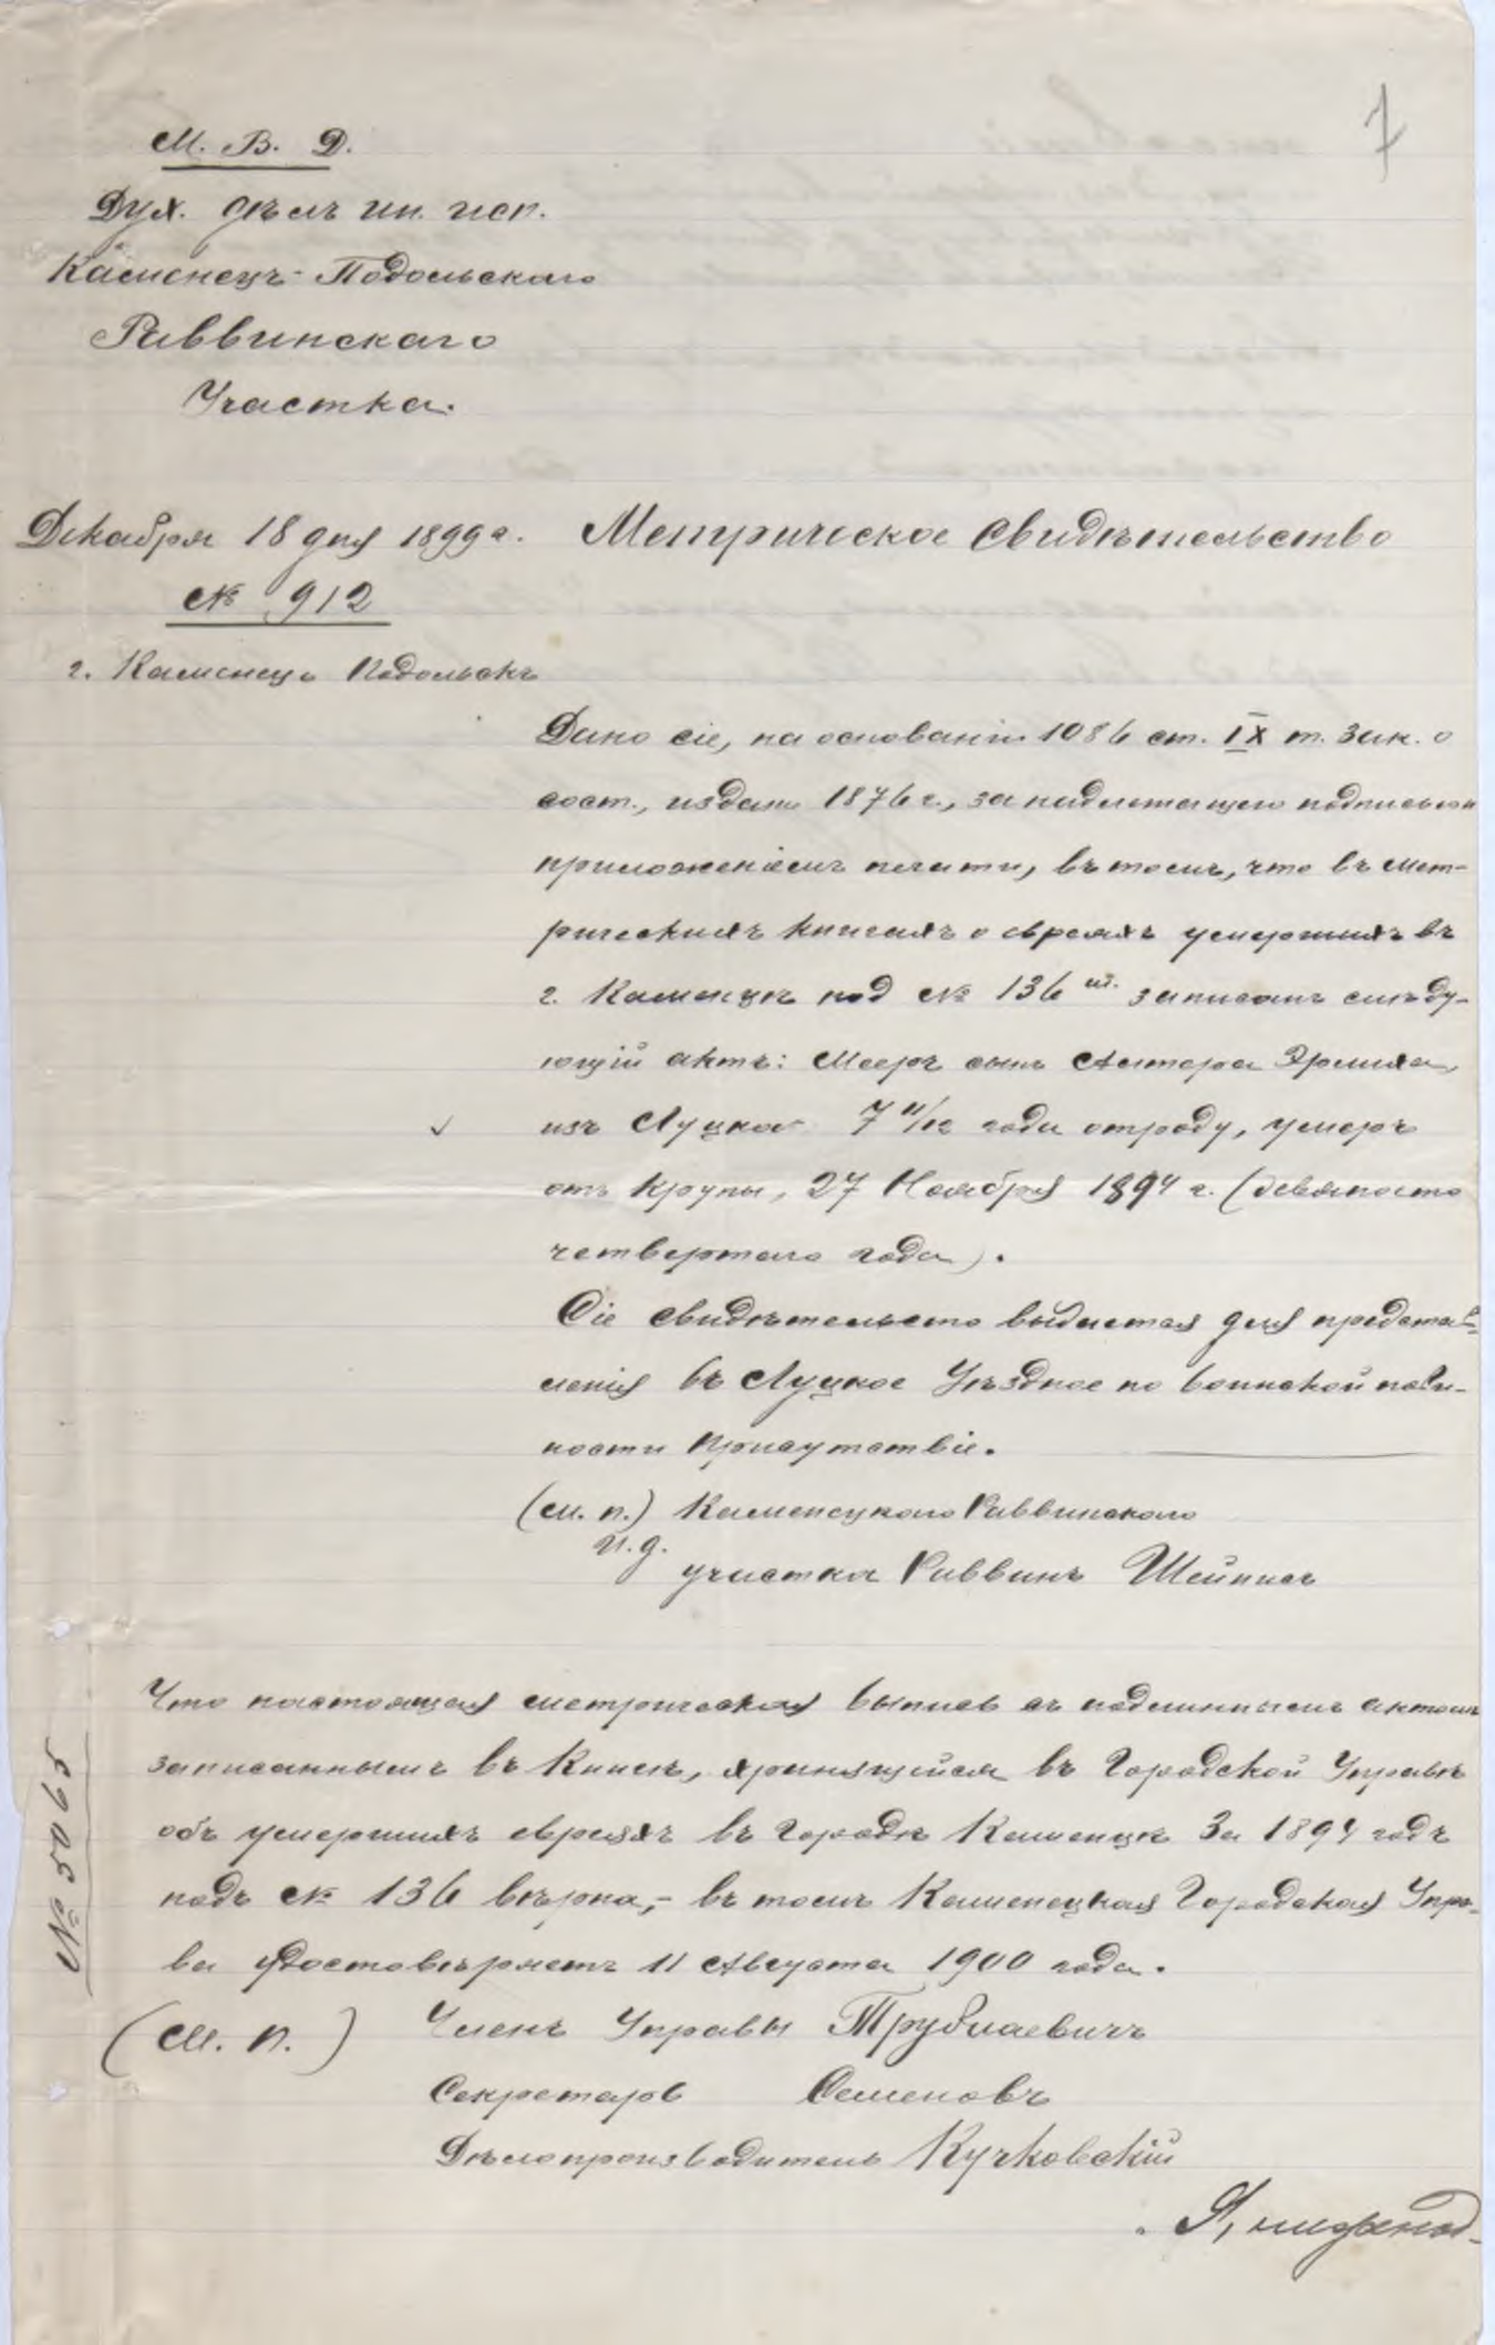 7
М. В. Д.
Дух. дѣлъ ин. исп.
Каменецъ-Подольскаго
Раввинскаго
Участка.
Декабря 18 дня 1899 г. Метрическое свидѣтельство
№ 912
г. Каменецъ Подольскъ
Дано сіе, на основаніи 1086 ст. IX т. Зак. о
сост., издан. 1876 г., за надлежащею подписью и
приложеніемъ печати, въ томъ, что въ мет-
рическихъ книгахъ о евреяхъ умершихъ въ
г. Каменцѣ под № 136 м. записанъ слѣду-
ющій актъ: Мееръ сынъ Алтера
изъ Луцка 7 11/12 года отроду, умеръ
отъ крупы, 27 Ноября 1894 г. (девяносто
четвертаго года).
Сіе свидѣтельсто выдается для представ-
ленія въ Луцкое Уѣздное по воинской пови-
ности Присутствіе.
(м. п.) Каменецкаго Раввинскаго
И. д.
участка Раввинъ Шейнисъ
Что настоящая метрическая выпись съ подлиннымъ актомъ
записаннымъ въ Книгѣ, хранящейся въ Городской Управѣ
объ умершихъ евреяхъ въ городѣ Каменцѣ За 1894 годъ
подъ № 136 вѣрна,- въ томъ Каменецкая Городская Упра-
ва удостовѣряетъ 11 Августа 1900 года.
№ 5065
(М. П.) Членъ Управы
Секретарь Семеновъ
Дѣлопроизводитель Кучковскій
Я, нижепод-